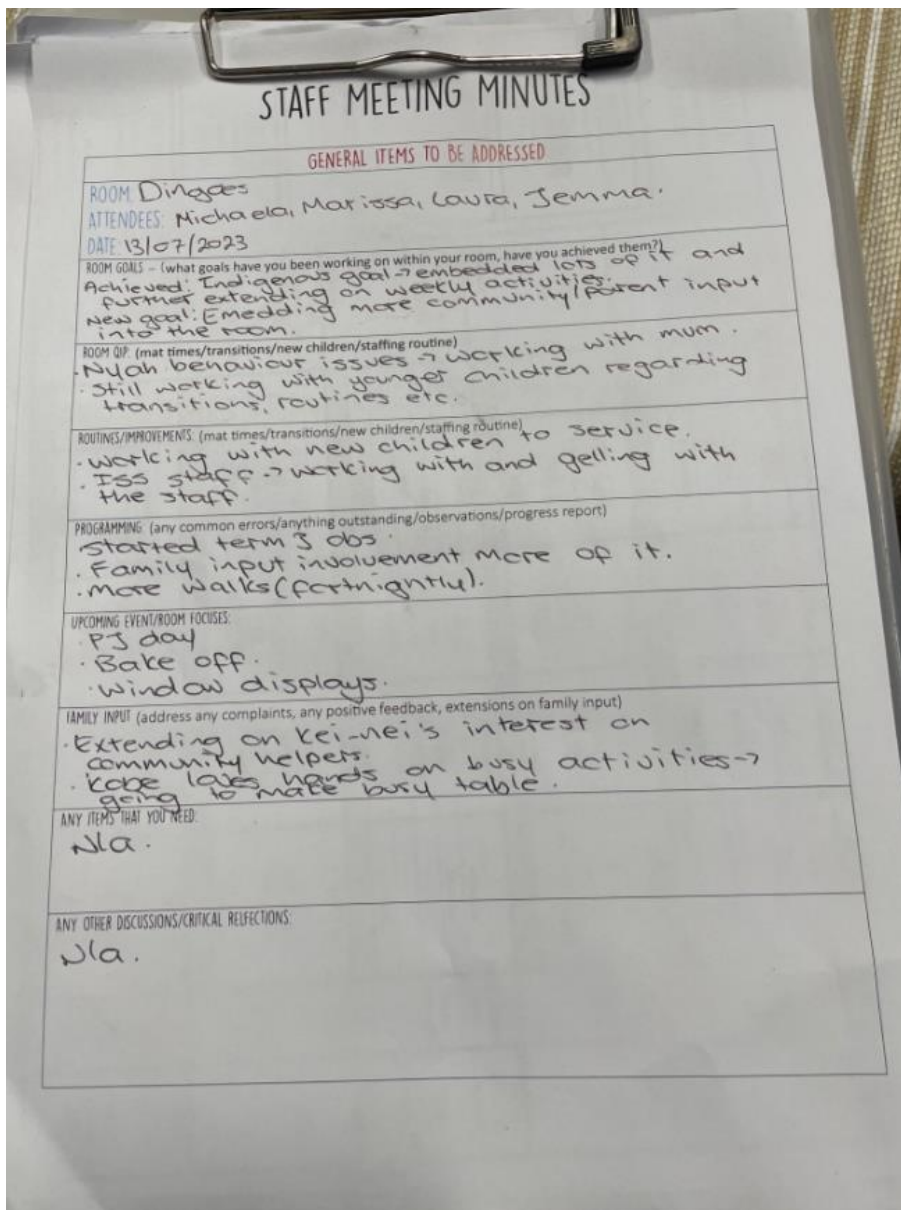 STAFF MEETING MINUTES
GENERAL ITEMS TO BE ADDRESSED
ROOM: Dingoes
ATTENDEES: Michaela, Marissa, Laura, Jemma.
DATE: 13/07/2023
ROOM GOALS – (what goals have you been working on within your room, have you achieved them?)
Achieved: Indigenous goal → embedded lots of it and
further extending on weekly activities.
New goal: Emedding more community/parent input
into the room.
ROOM QIP: (mat times/transitions/new children/staffing routine)
· Nyah behaviour issues → working with mum.
· Still working with younger children regarding
transitions, routines etc.
ROUTINES/IMPROVEMENTS: (mat times/transitions/new children/staffing routine)
· working with new children to service.
· ISS staff → working with and gelling with
the staff.
PROGRAMMING: (any common errors/anything outstanding/observations/progress report)
Started term 3 obs.
· Family input involvement more of it.
· more walks (fortnightly).
UPCOMING EVENT/ROOM FOCUSES:
· PJ day
· Bake off.
· window displays.
FAMILY INPUT (address any complaints, any positive feedback, extensions on family input)
· Extending on Kei-nei's interest on
community helpers.
· Kobe loves hands on busy activities →
going to make busy table.
ANY ITEMS THAT YOU NEED:
N/a.
ANY OTHER DISCUSSIONS/CRITICAL RELFECTIONS:
N/a.